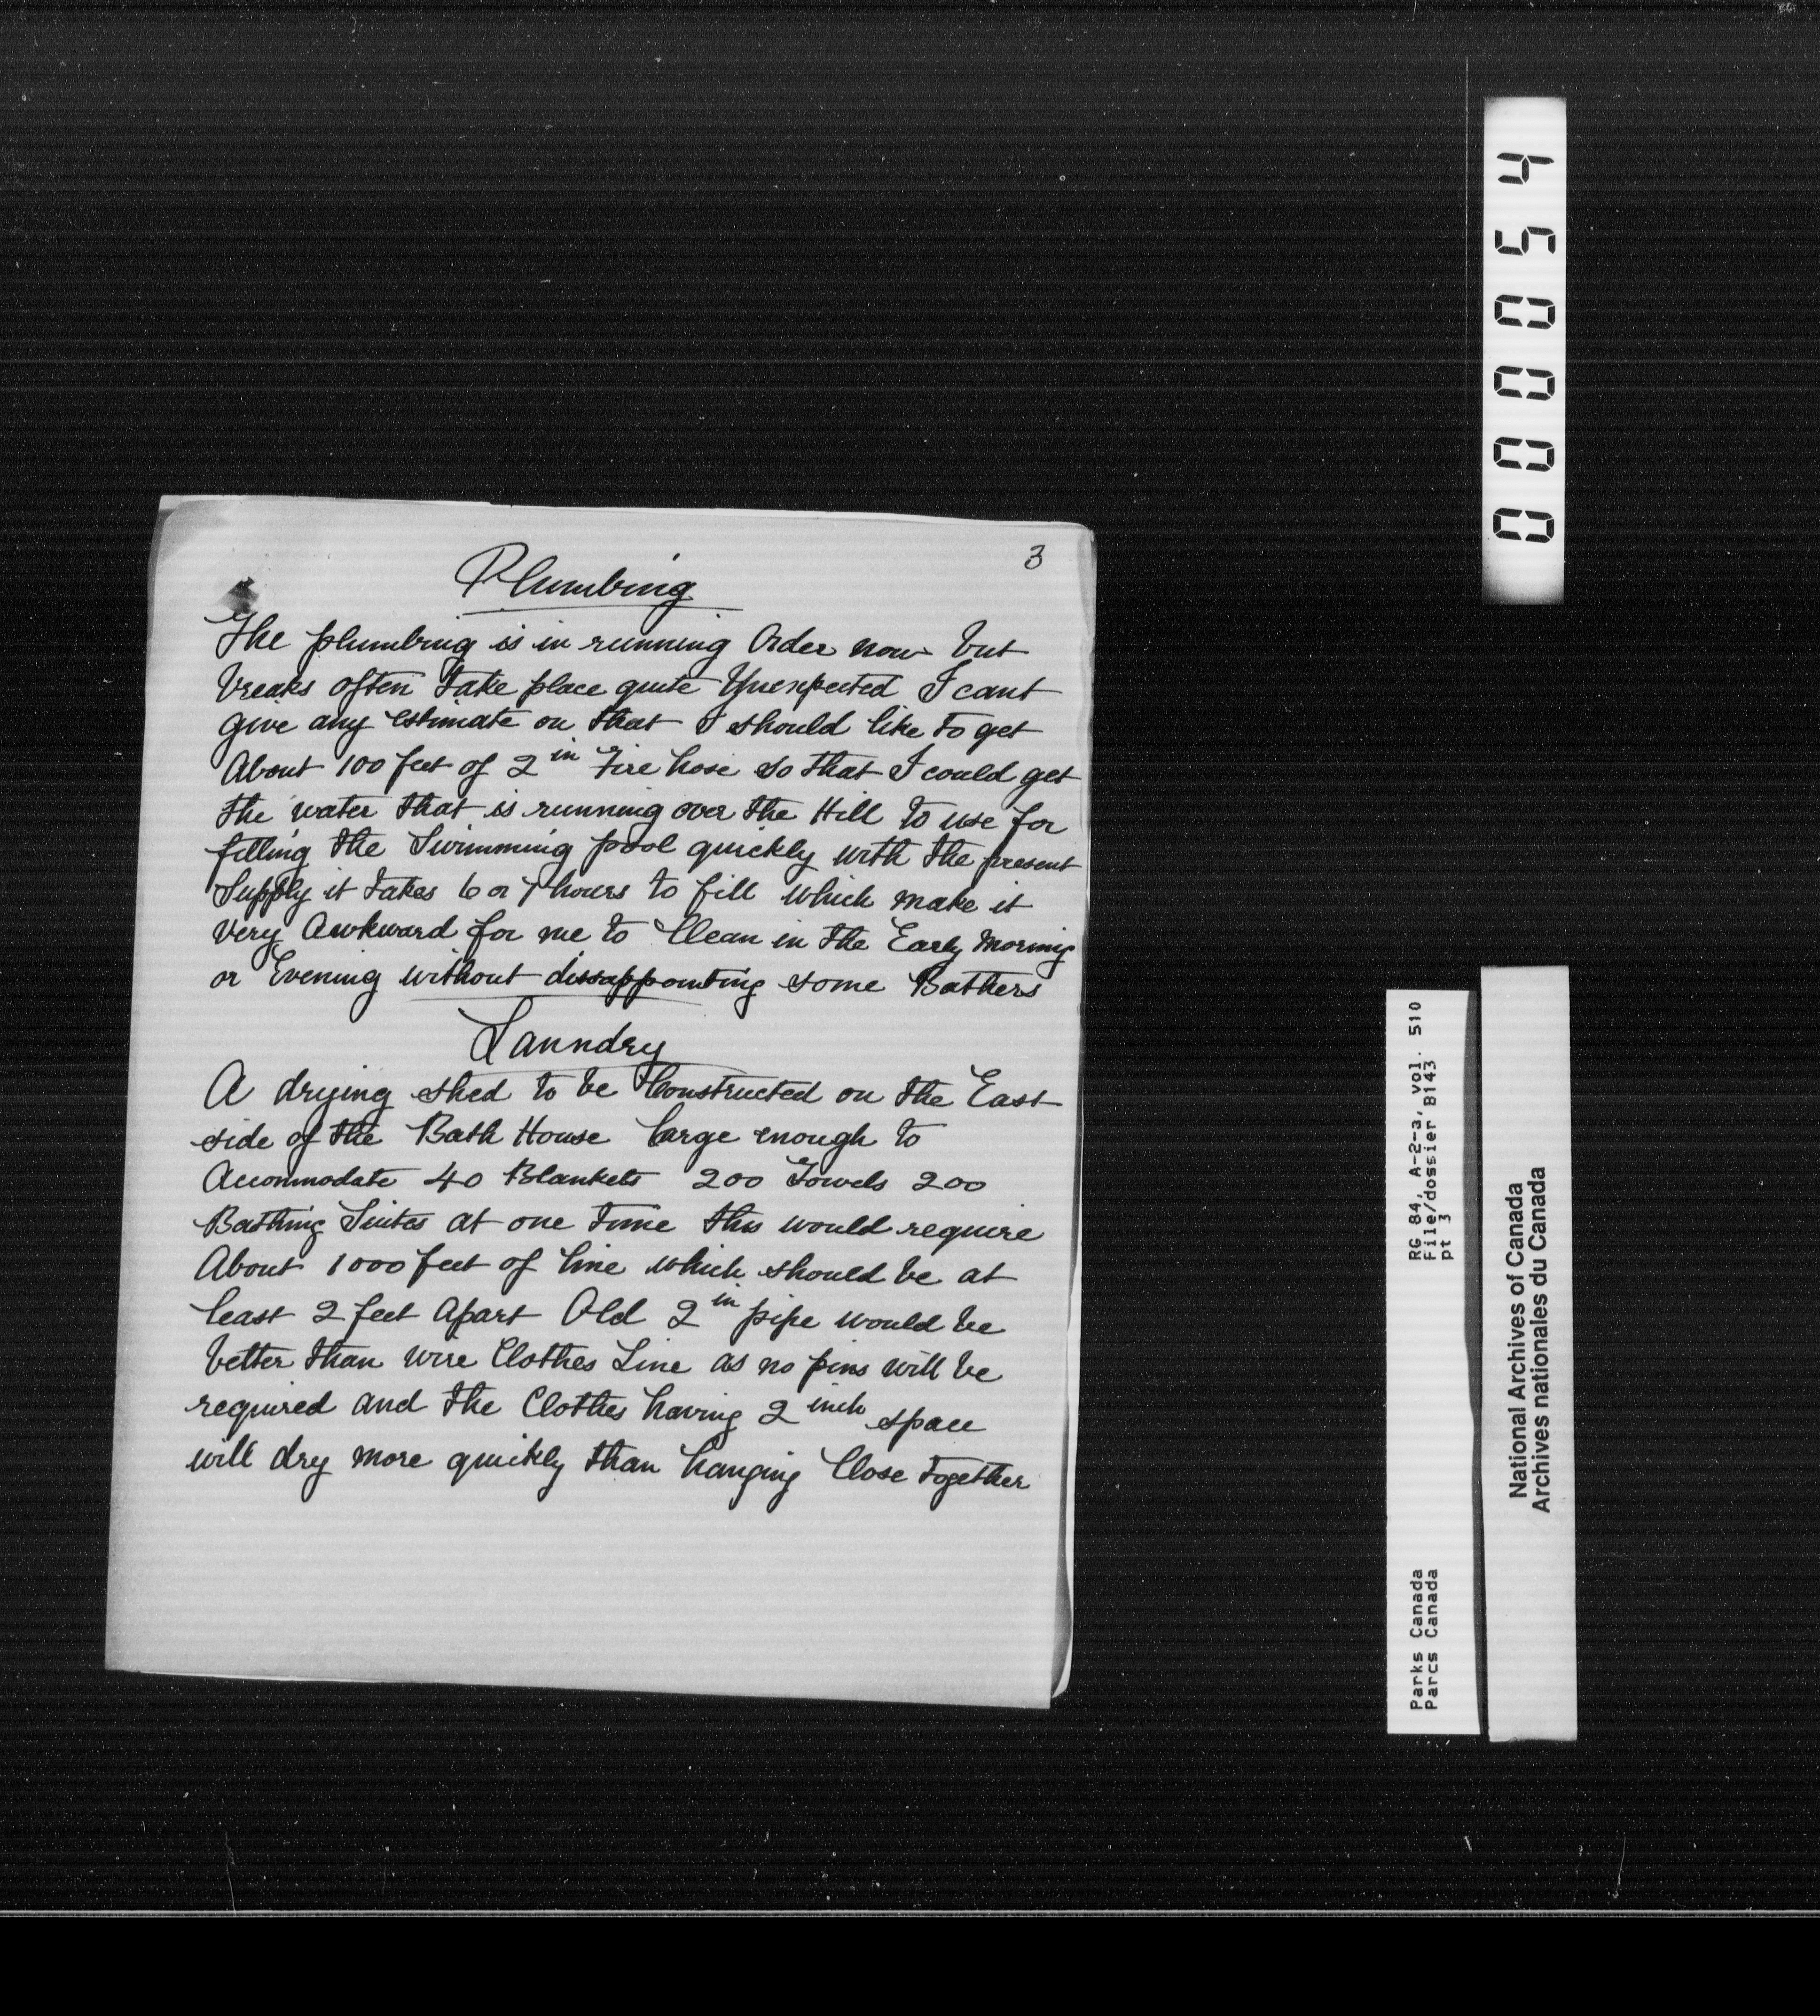 3
Plumbing
The plumbing is in running Order now but
breaks often take place quite Unexpected I cant
give any estimate on that I should like to get
About 100 feet of 2 in Fire hose so that I could get
the water that is running over the Hill to use for
filling the Swimming pool quickly with the present
Supply it takes 6 or 7 hours to fill which make it
very Awkward for me to Clean in the Early Morning
or Evening without dissappointing some Bathers
Laundry
A drying shed to be Constructed on the East
side of the Bath House large enough to
Accommodate 40 Blankets 200 Towels 200
Bathing Suites at one time this would require
About 1000 feet of line which should be at
least 2 feet apart Old 2 in pipe would be
better than wire Clothes Line as no pins will be
required and the Clothes having 2 inch space
will dry more quickly than hanging Close together
000054
RG 84, A-2-a, vol. 510
File/dossier B143
pt 3
Parks Canada
Parcs Canada
National Archives of Canada
Archives nationales du Canada